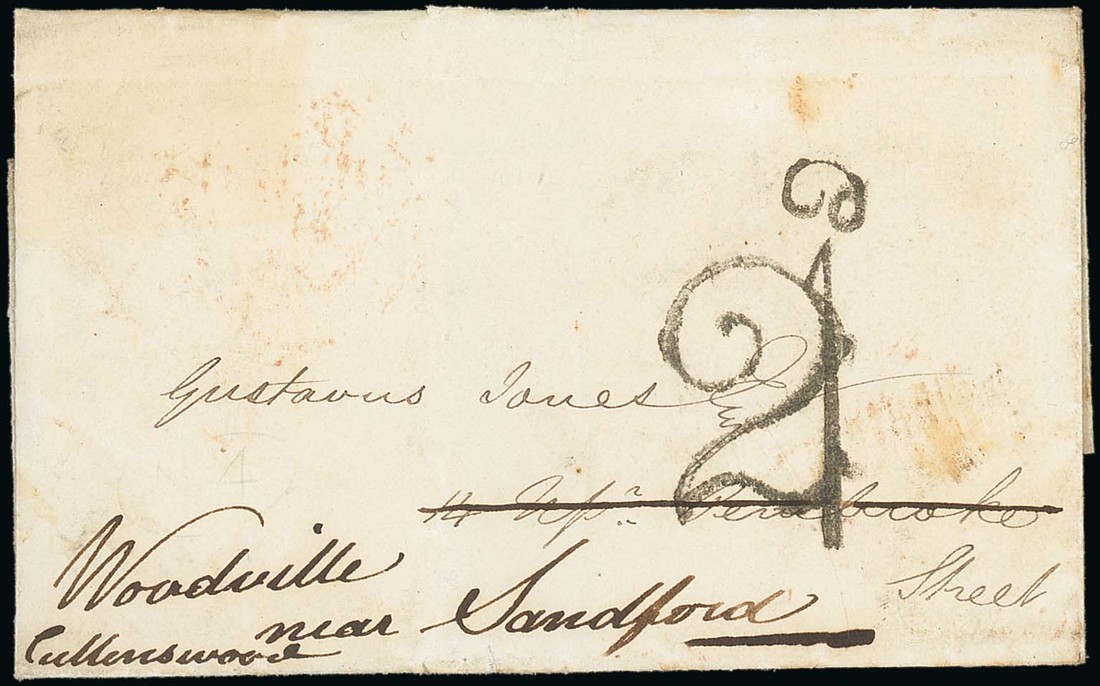 2d
Gustavus Jones Esq
14 Upr. Pembroke
Street
Woodville
near Sandford
Cullenswood